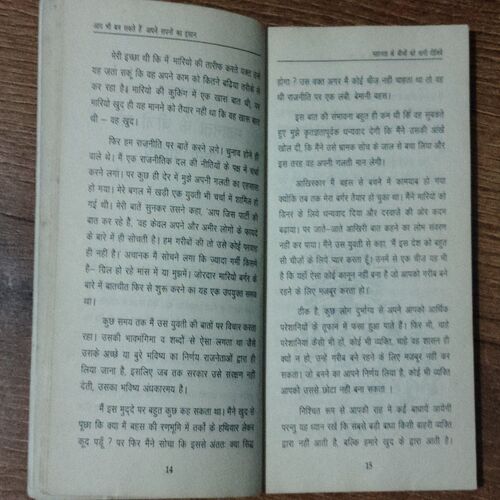 आप भी बन सकते हैं अपने सपनों का इन्सान
मेरी इच्छा थी कि मैं मारियो की तारीफ करते वक्त उसे
यह जता सकूं कि वह अपने काम को कितने बढ़िया तरीके से
कर रहा है। मारियो की कुकिंग में एक खास बात थी, पर
मारियो खुद ही यह मानने को तैयार नहीं था कि वह खास बात
थी – वह खुद।
फिर हम राजनीति पर बातें करने लगे। चुनाव होने ही
वाले थे। मैं एक राजनीतिक दल की नीतियों के पक्ष में चर्चा
करने लगा। पर कुछ ही देर में मुझे अपनी गलती का एहसास
हो गया। मेरे बगल में खड़ी एक युवती भी चर्चा में शामिल हो
गई थी। मेरी बातें सुनकर उसने कहा, 'आप जिस पार्टी की
बात कर रहे हैं, 'वह केवल अपने और अमीर लोगों के फायदे
के बारे में ही सोचती है। हम गरीबों की तो उसे कोई परवाह
ही नहीं है।' अचानक मैं सोचने लगा कि ज्यादा गर्मी किसमें
है– ग्रिल हो रहे मांस में या मुझमें। जोरदार मारियो बर्गर के
बारे में बातचीत फिर से शुरू करने का यह एक उपयुक्त समय
था।
कुछ समय तक मैं उस युवती की बातों पर विचार करता
रहा। उसकी भावभंगिमा व शब्दों से ऐसा लगता था जैसे
उसके अच्छे या बुरे भविष्य का निर्णय राजनेताओं द्वारा ही
लिया जाना है, इसलिए जब तक सरकार उसे संरक्षण नहीं
देती, उसका भविष्य अंधकारमय है।
मैं इस मुद्दे पर बहुत कुछ कह सकता था। मैंने खुद से
पूछा कि क्या मैं बहस की रणभूमि में तर्कों के हथियार लेकर
कूद पड़ूँ ? पर फिर मैंने सोचा कि इससे अंततः क्या सिद्ध
14
महानता के बीजों को पानी दीजिये
होगा ? उस वक्त अगर मैं कोई चीज नहीं चाहता था तो वह
थी राजनीति पर एक लंबी, बेमानी बहस।
इस बात की संभावना बहुत ही कम थी कि वह सुबकते
हुए मुझे कृतज्ञतापूर्वक धन्यवाद देगी कि मैंने उसकी आंखें
खोल दी, कि मैंने उसे भ्रामक सोच के जाल से बचा लिया और
इस तरह वह अपनी गलती मान लेगी।
आखिरकार मैं बहस से बचने में कामयाब हो गया
क्योंकि तब तक मेरा बर्गर तैयार हो चुका था। मैंने मारियो को
डिनर के लिये धन्यवाद दिया और दरवाजे की ओर कदम
बढ़ाया। पर जाते–जाते आखिरी बात कहने का लोभ संवरण
नही कर पाया। मैंने उस युवती से कहा, 'मैं इस देश को बहुत
सी चीजों के लिये प्यार करता हूँ। उनमें से एक चीज यह भी
है कि यहाँ ऐसा कोई कानून नहीं बना है जो आपको गरीब बने
रहने के लिए मजबूर करता हो।
ठीक है, कुछ लोग दुर्भाग्य से अपने आपको आर्थिक
परेशानियों के तूफान में फंसा हुआ पाते हैं। फिर भी, चाहे
परेशानियां कैसी भी हों, कोई भी व्यक्ति, चाहे वह शासन ही
क्यों न हो, उन्हें गरीब बने रहने के लिए मजबूर नहीं कर
सकता। जो बनने का आपने निर्णय लिया है, कोई भी व्यक्ति
आपको उससे छोटा नहीं बना सकता ।
निश्चित रूप से आपकी राह में कई बाधायें आयेंगी
परन्तु यह ध्यान रखें कि सबसे बड़ी बाधा किसी बाहरी व्यक्ति
द्वारा नहीं आती है, बल्कि हमारे खुद के द्वारा आती है।
15